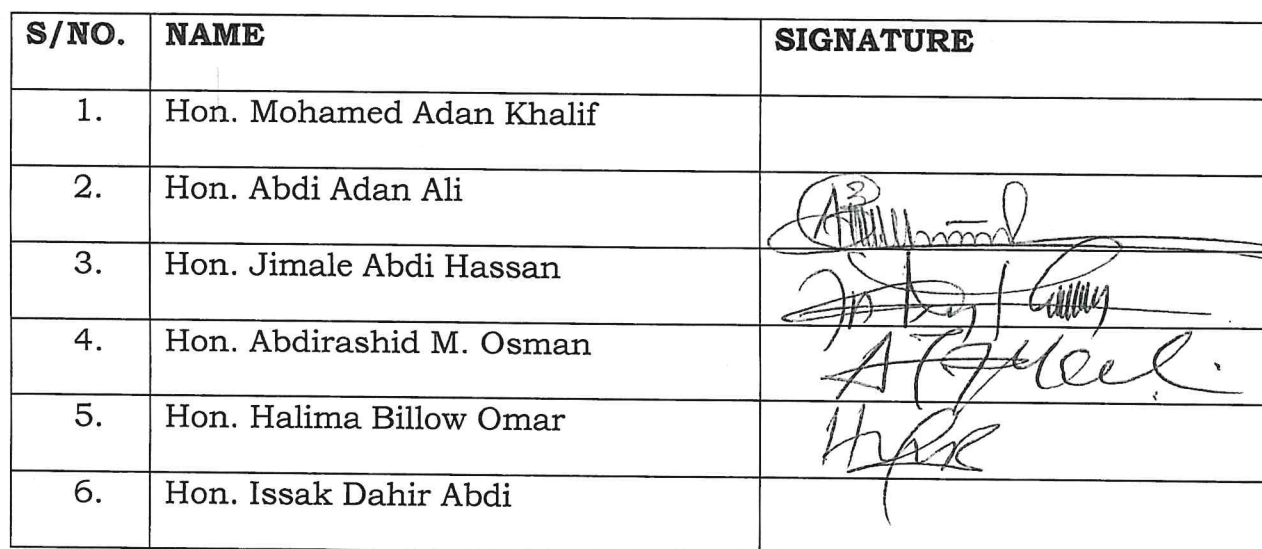 S/NO. NAME SIGNATURE
1. Hon. Mohamed Adan Khalif
2. Hon. Abdi Adan Ali
3. Hon. Jimale Abdi Hassan
4. Hon. Abdirashid M. Osman
5. Hon. Halima Billow Omar
6. Hon. Issak Dahir Abdi